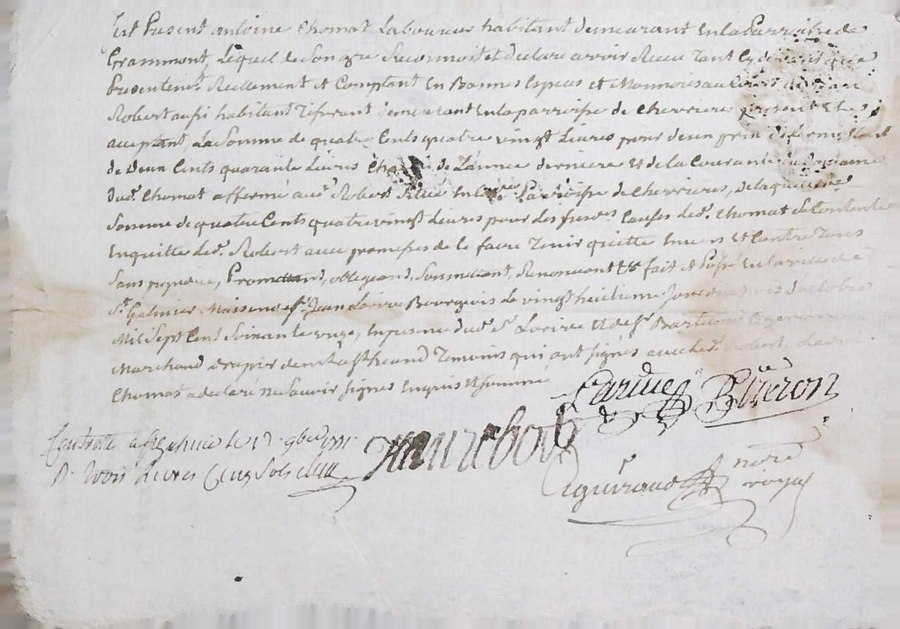 Est Present antoine Thomat Laboureur habitant demeurant En la Parroisse de
Grammont, Lequel de Son gre Reconnoit et declare avoir Receu tant Cy devant que
Presentemt. Reellement et Comptant En Bonnes Especes et Monnois au Cours de Jean
Robert aussi habitant demeurant En la parroisse de Chevrieres present Et
acceptant La Somme de quatre Cents quatre vingt Livres pour deux
de Deux Cents quarante Livres de L'année derniere Et de la Courante
dud. Thomat affermé aud. Robert En lad. Parroisse de Chevrieres, De laquelle
Somme de quatre Cents quatre vingt Livres pour les susdes. Causes led. Thomat Se Contente
En quitte led. Robert avec promesses de le faire Tenir quitte Envers Et Contre Tous
Sans peyne, Promettant, obligeant, Soumettant Renoncant &a fait et Passé En la ville de
St. Galmier Maison de sr. Jean Bourgeois Le vingt huitieme Jour du mois d'octobre
Mil Sept Cent Soixante onze, En presence dud. Sr. Et de sr.
Marchand Drapier dem. Temoins qui ont signés avec led. Robert,
Thomat a declaré ne Scavoir signer Enquis Et sommé
Larive Bueron
Controllé a St galmier le 12 9bre 1771
R. trois Livres Cinq Sols
Jean rebort
nore royal